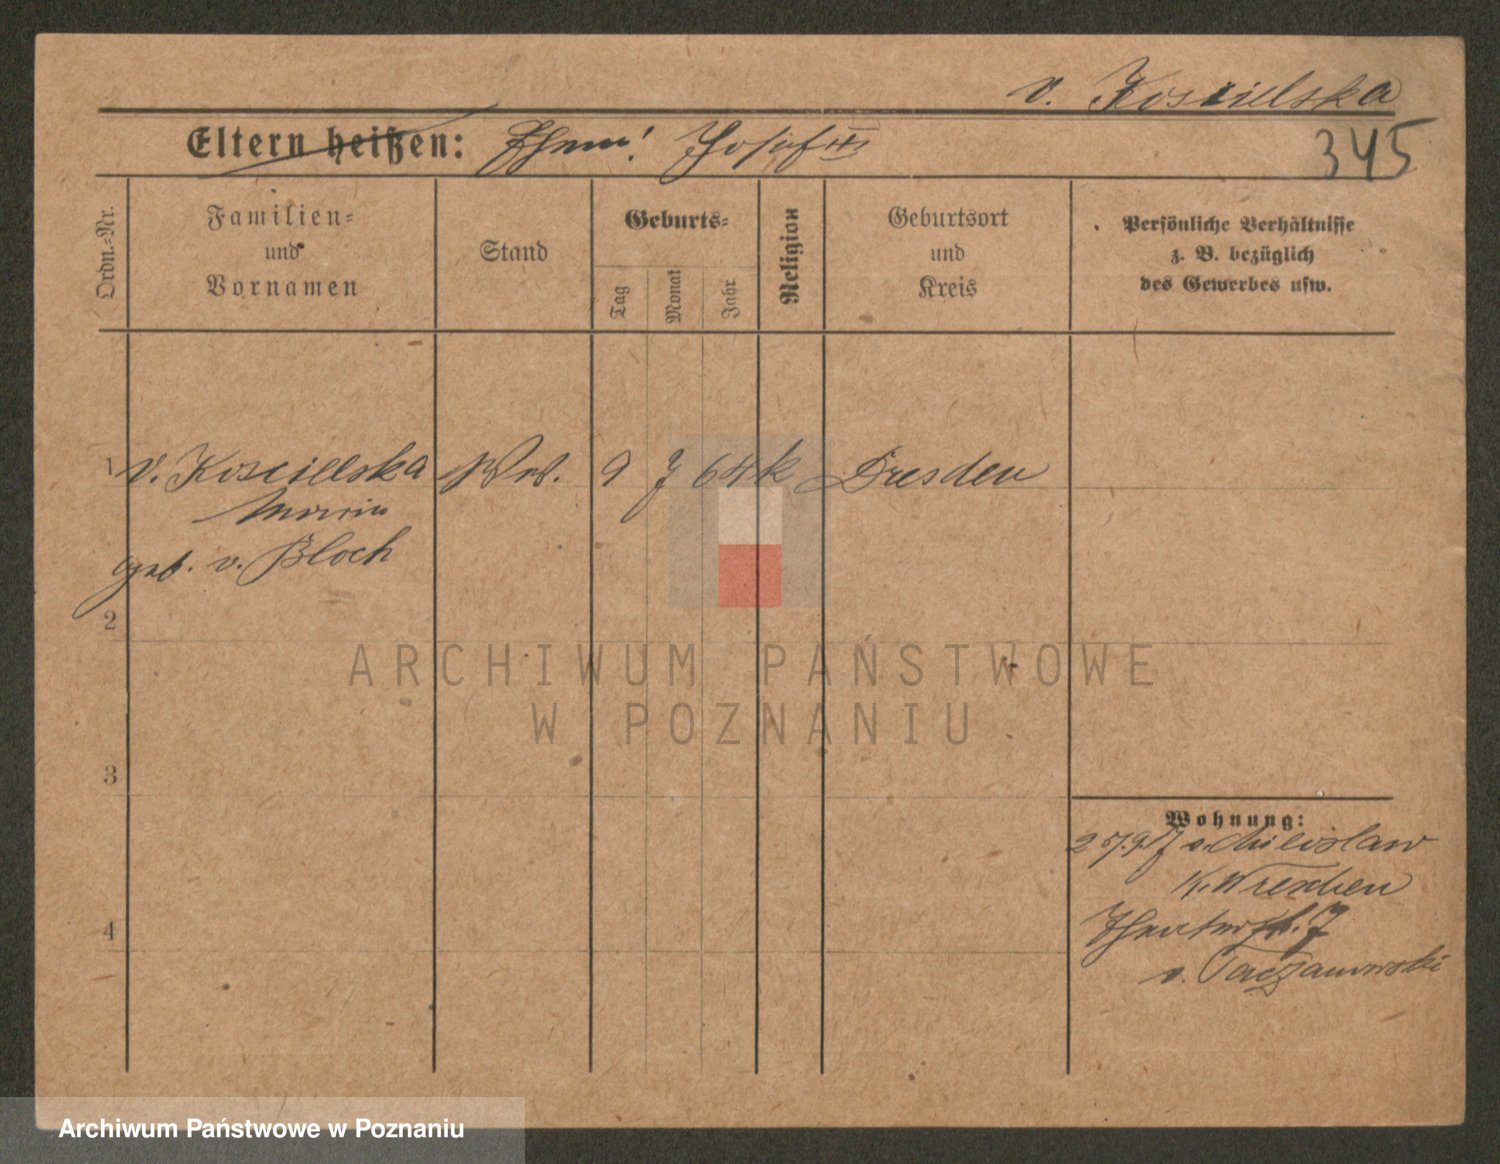 v. Koscielska
Eltern heißen: Ehem! Josef III
345
Ordn.-Nr.
Familien-
und
Vornamen
Stand
Geburts-
Tag
Monat
Jahr
Religion
Geburtsort
und
Kreis
Persönliche Verhältnisse
z. B. bezüglich
des Gewerbes usw.
1 v. Koscielska Ww. 9 7 64 k Dresden
Maria
geb. v. Bloch
2
3
4
Wohnung:
25/9.17 v. Miloslaw
K. Wreschen
Theaterstr. 7
v. Taczanowski
ARCHIWUM PAŃSTWOWE
W POZNANIU
Archiwum Państwowe w Poznaniu